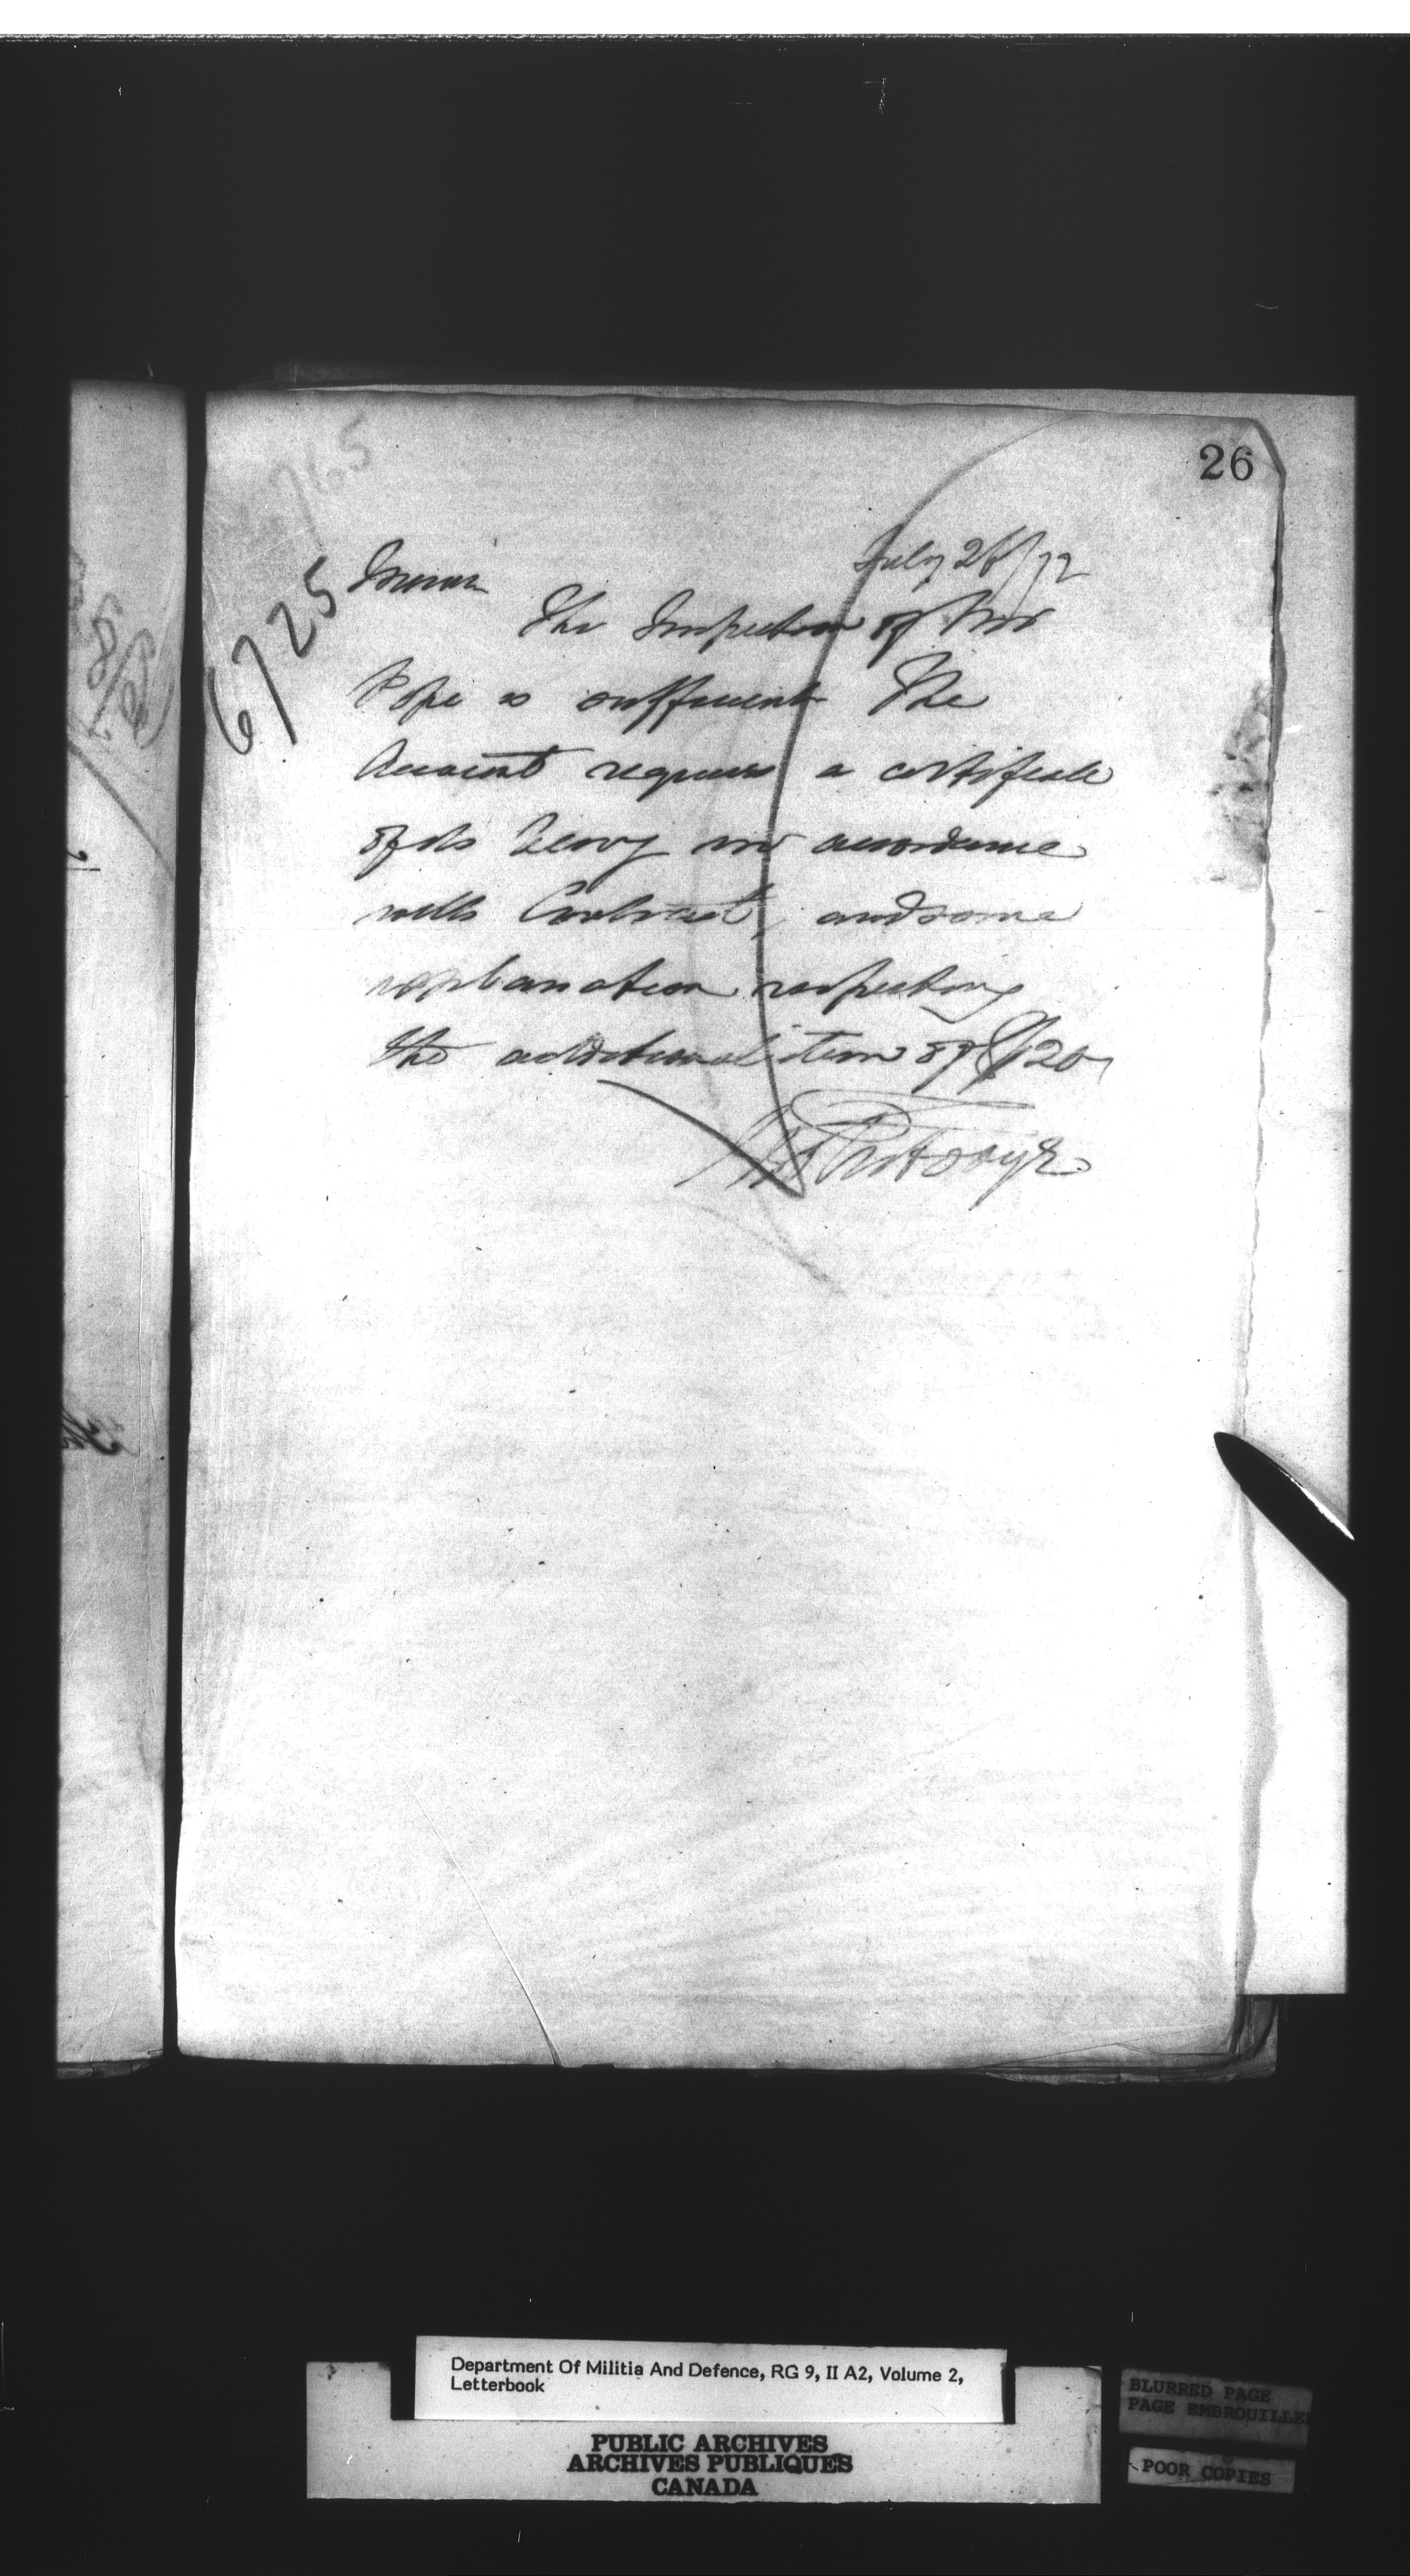 26
6725
July 26/72
Memo
The Inspection of Mr
Pope is sufficient The
Account requires a certificate
of its being in accordance
with Contract, and some
explanation respecting
the additional item of $20
Department Of Militia And Defence, RG 9, II A2, Volume 2,
Letterbook
PUBLIC ARCHIVES
ARCHIVES PUBLIQUES
CANADA
BLURRED PAGE
PAGE EMBROUILLEE
POOR COPIES